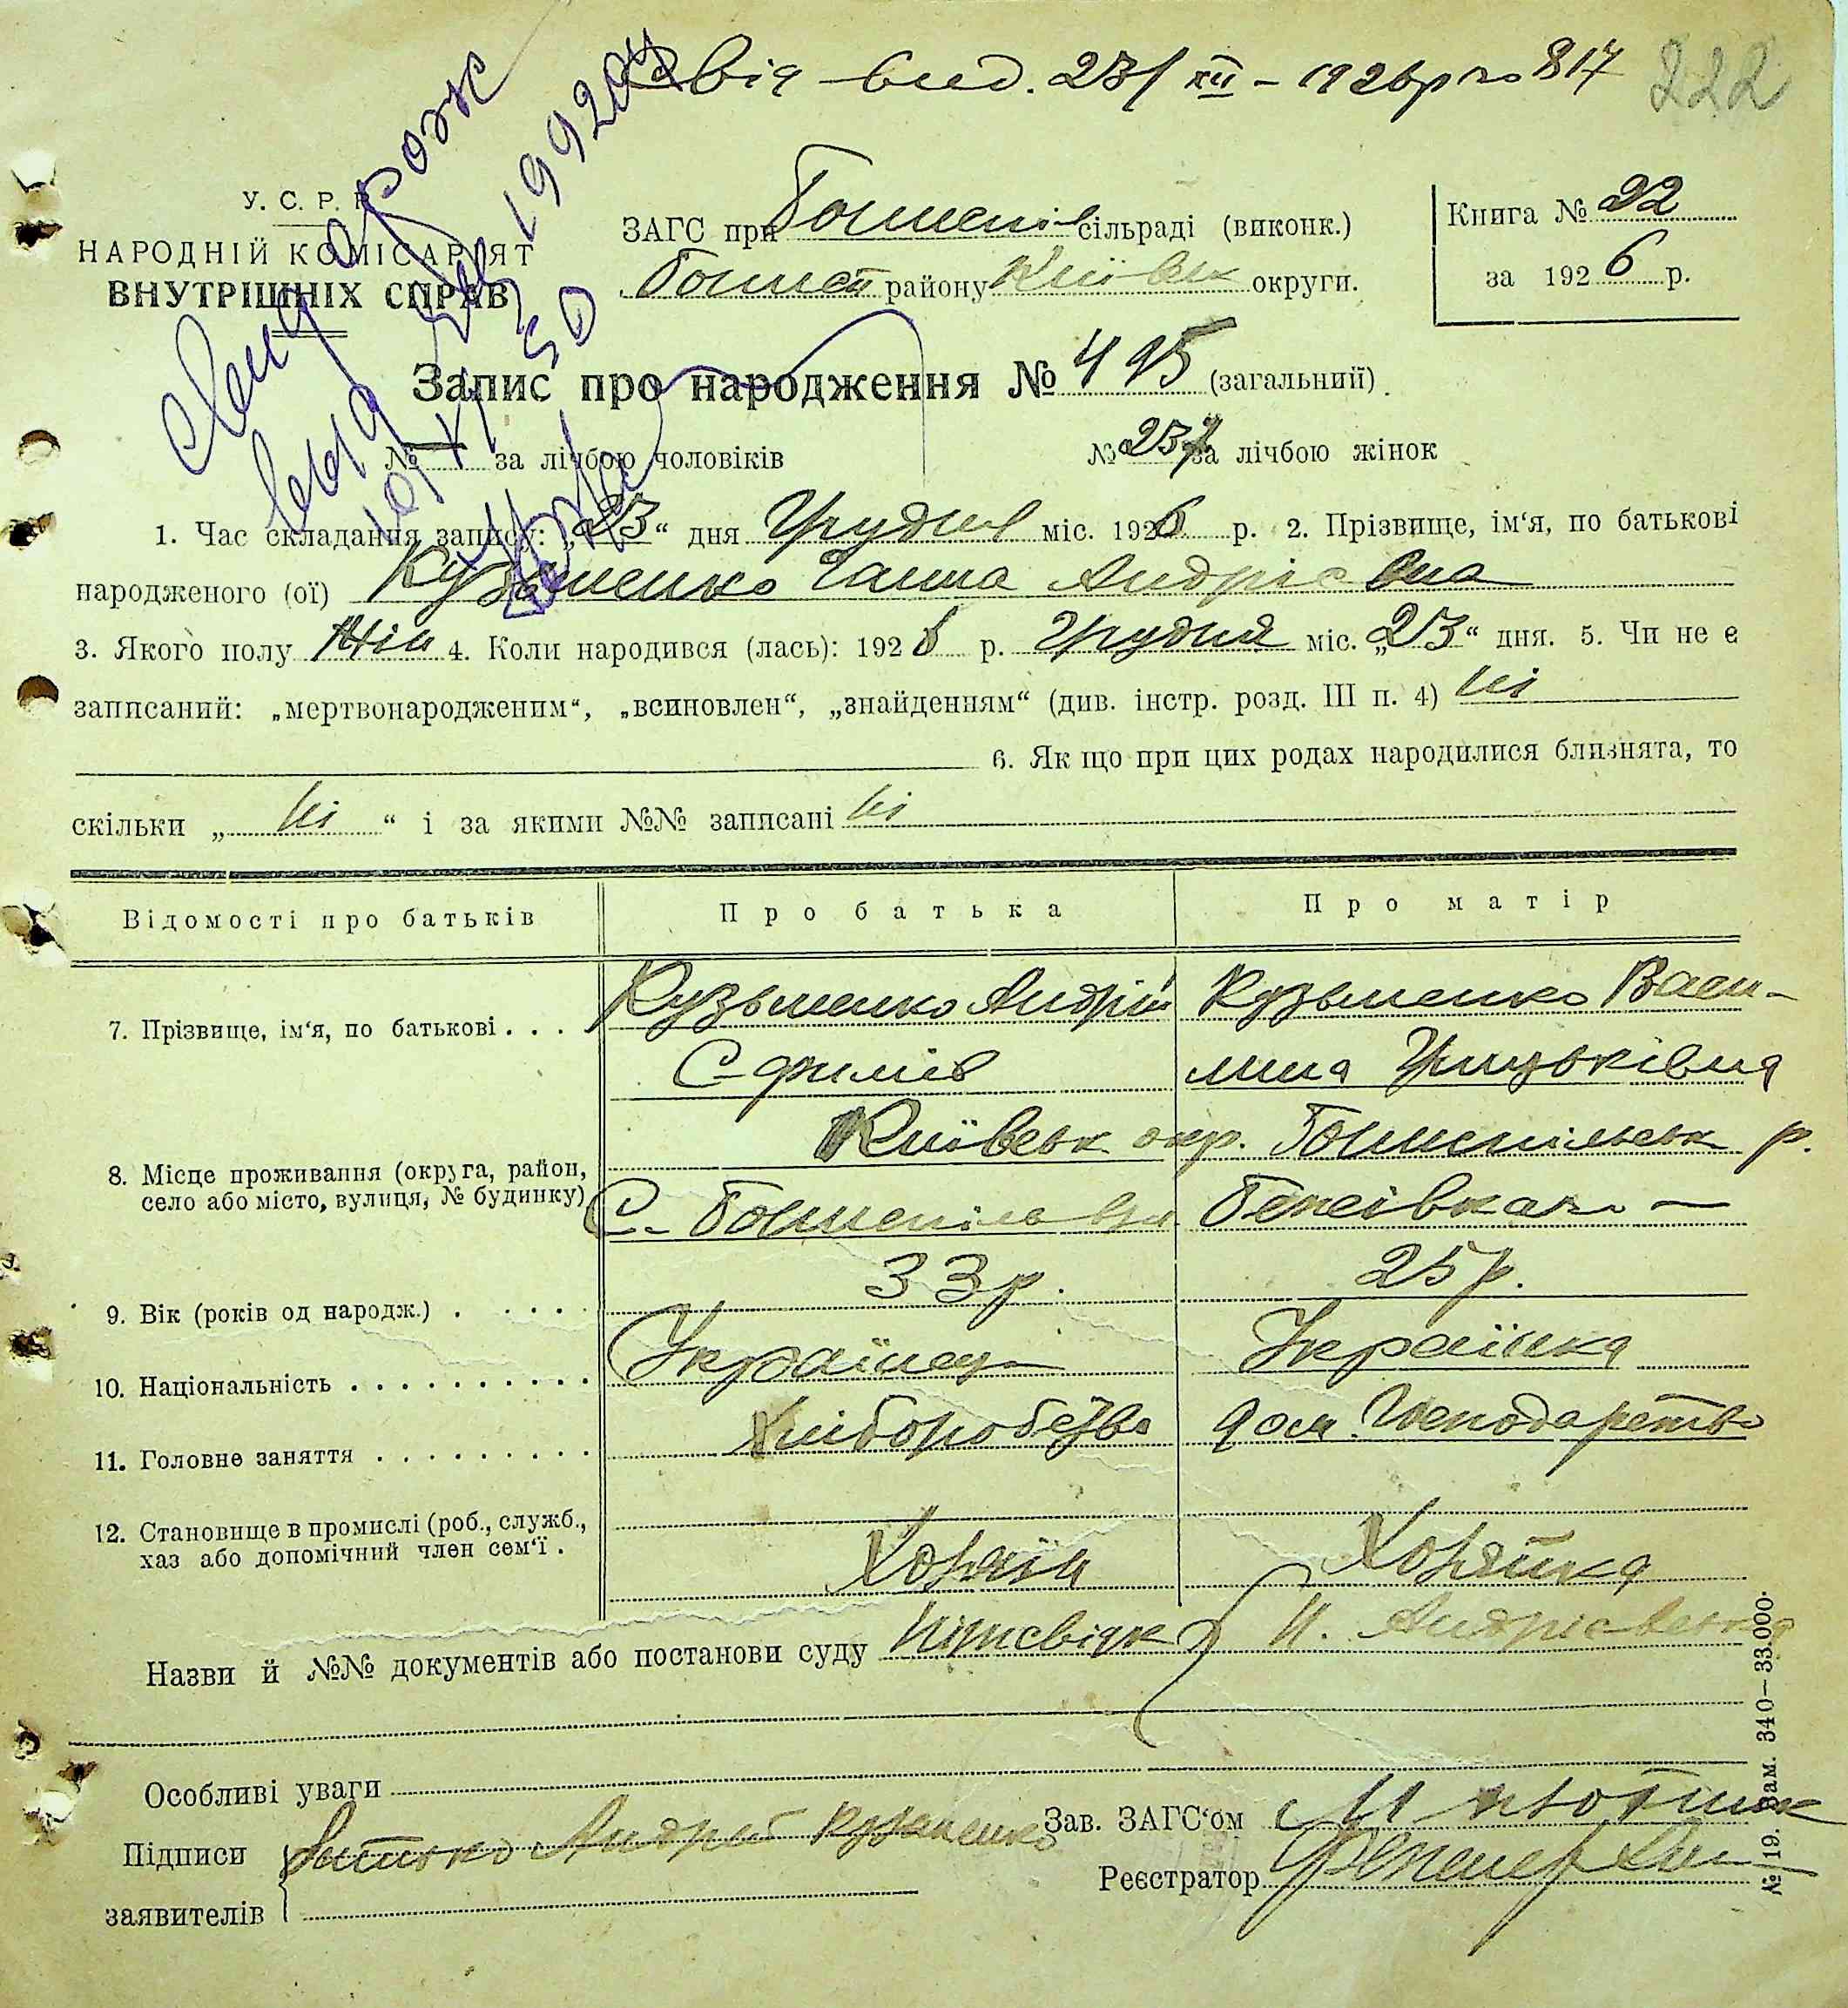 Свід вид. 23/XII - 1926р по 817
222
У. С. Р. Р.
НАРОДНІЙ КОМІСАРІЯТ
ВНУТРІШНІХ СПРАВ
ЗАГС при Гошепіл сільраді (виконк.)
району Київськ округи.
Книга № 22
за 1926 р.
Запис про народження № 495 (загальний).
№ за лічбою чоловіків
№ 237 за лічбою жінок
1. Час складання запису: „23“ дня Грудня міс. 1926 р. 2. Прізвище, ім‘я, по батькові
народженого (ої) Кузьменко Ганна Андрієвна
3. Якого полу Жін 4. Коли народився (лась): 1926 р. Грудня міс. „23“ дня. 5. Чи не є
записаний: „мертвонародженим“, „всиновлен“, „знайденням“ (див. інстр. розд. III п. 4) ні
6. Як що при цих родах народилися близнята, то
скільки „ ні “ і за якими №№ записані ні
Відомості про батьків
Про батька
Про матір
7. Прізвище, ім‘я, по батькові . . .
Кузьменко Андрій
Єфимів
Кузьменко Васи-
лина Грицьківна
8. Місце проживання (округа, район,
село або місто, вулиця, № будинку)
Київськ окр. р.
С.
9. Вік (років од народж.) . . . . .
33 р.
25 р.
10. Національність . . . . . . . . . .
Українець
Українка
11. Головне заняття . . . . . . . . .
Хліборобство
дом. Господарство
12. Становище в промислі (роб., служб.,
хаз або допомічний член сем‘ї .
Хозяїн
Хозяйка
Назви й №№ документів або постанови суду
Особливі уваги
Підписи
заявителів
Батько Андрей Кузьменко
Зав. ЗАГС‘ом
Реєстратор
№ 19. Зам. 340—33.000.